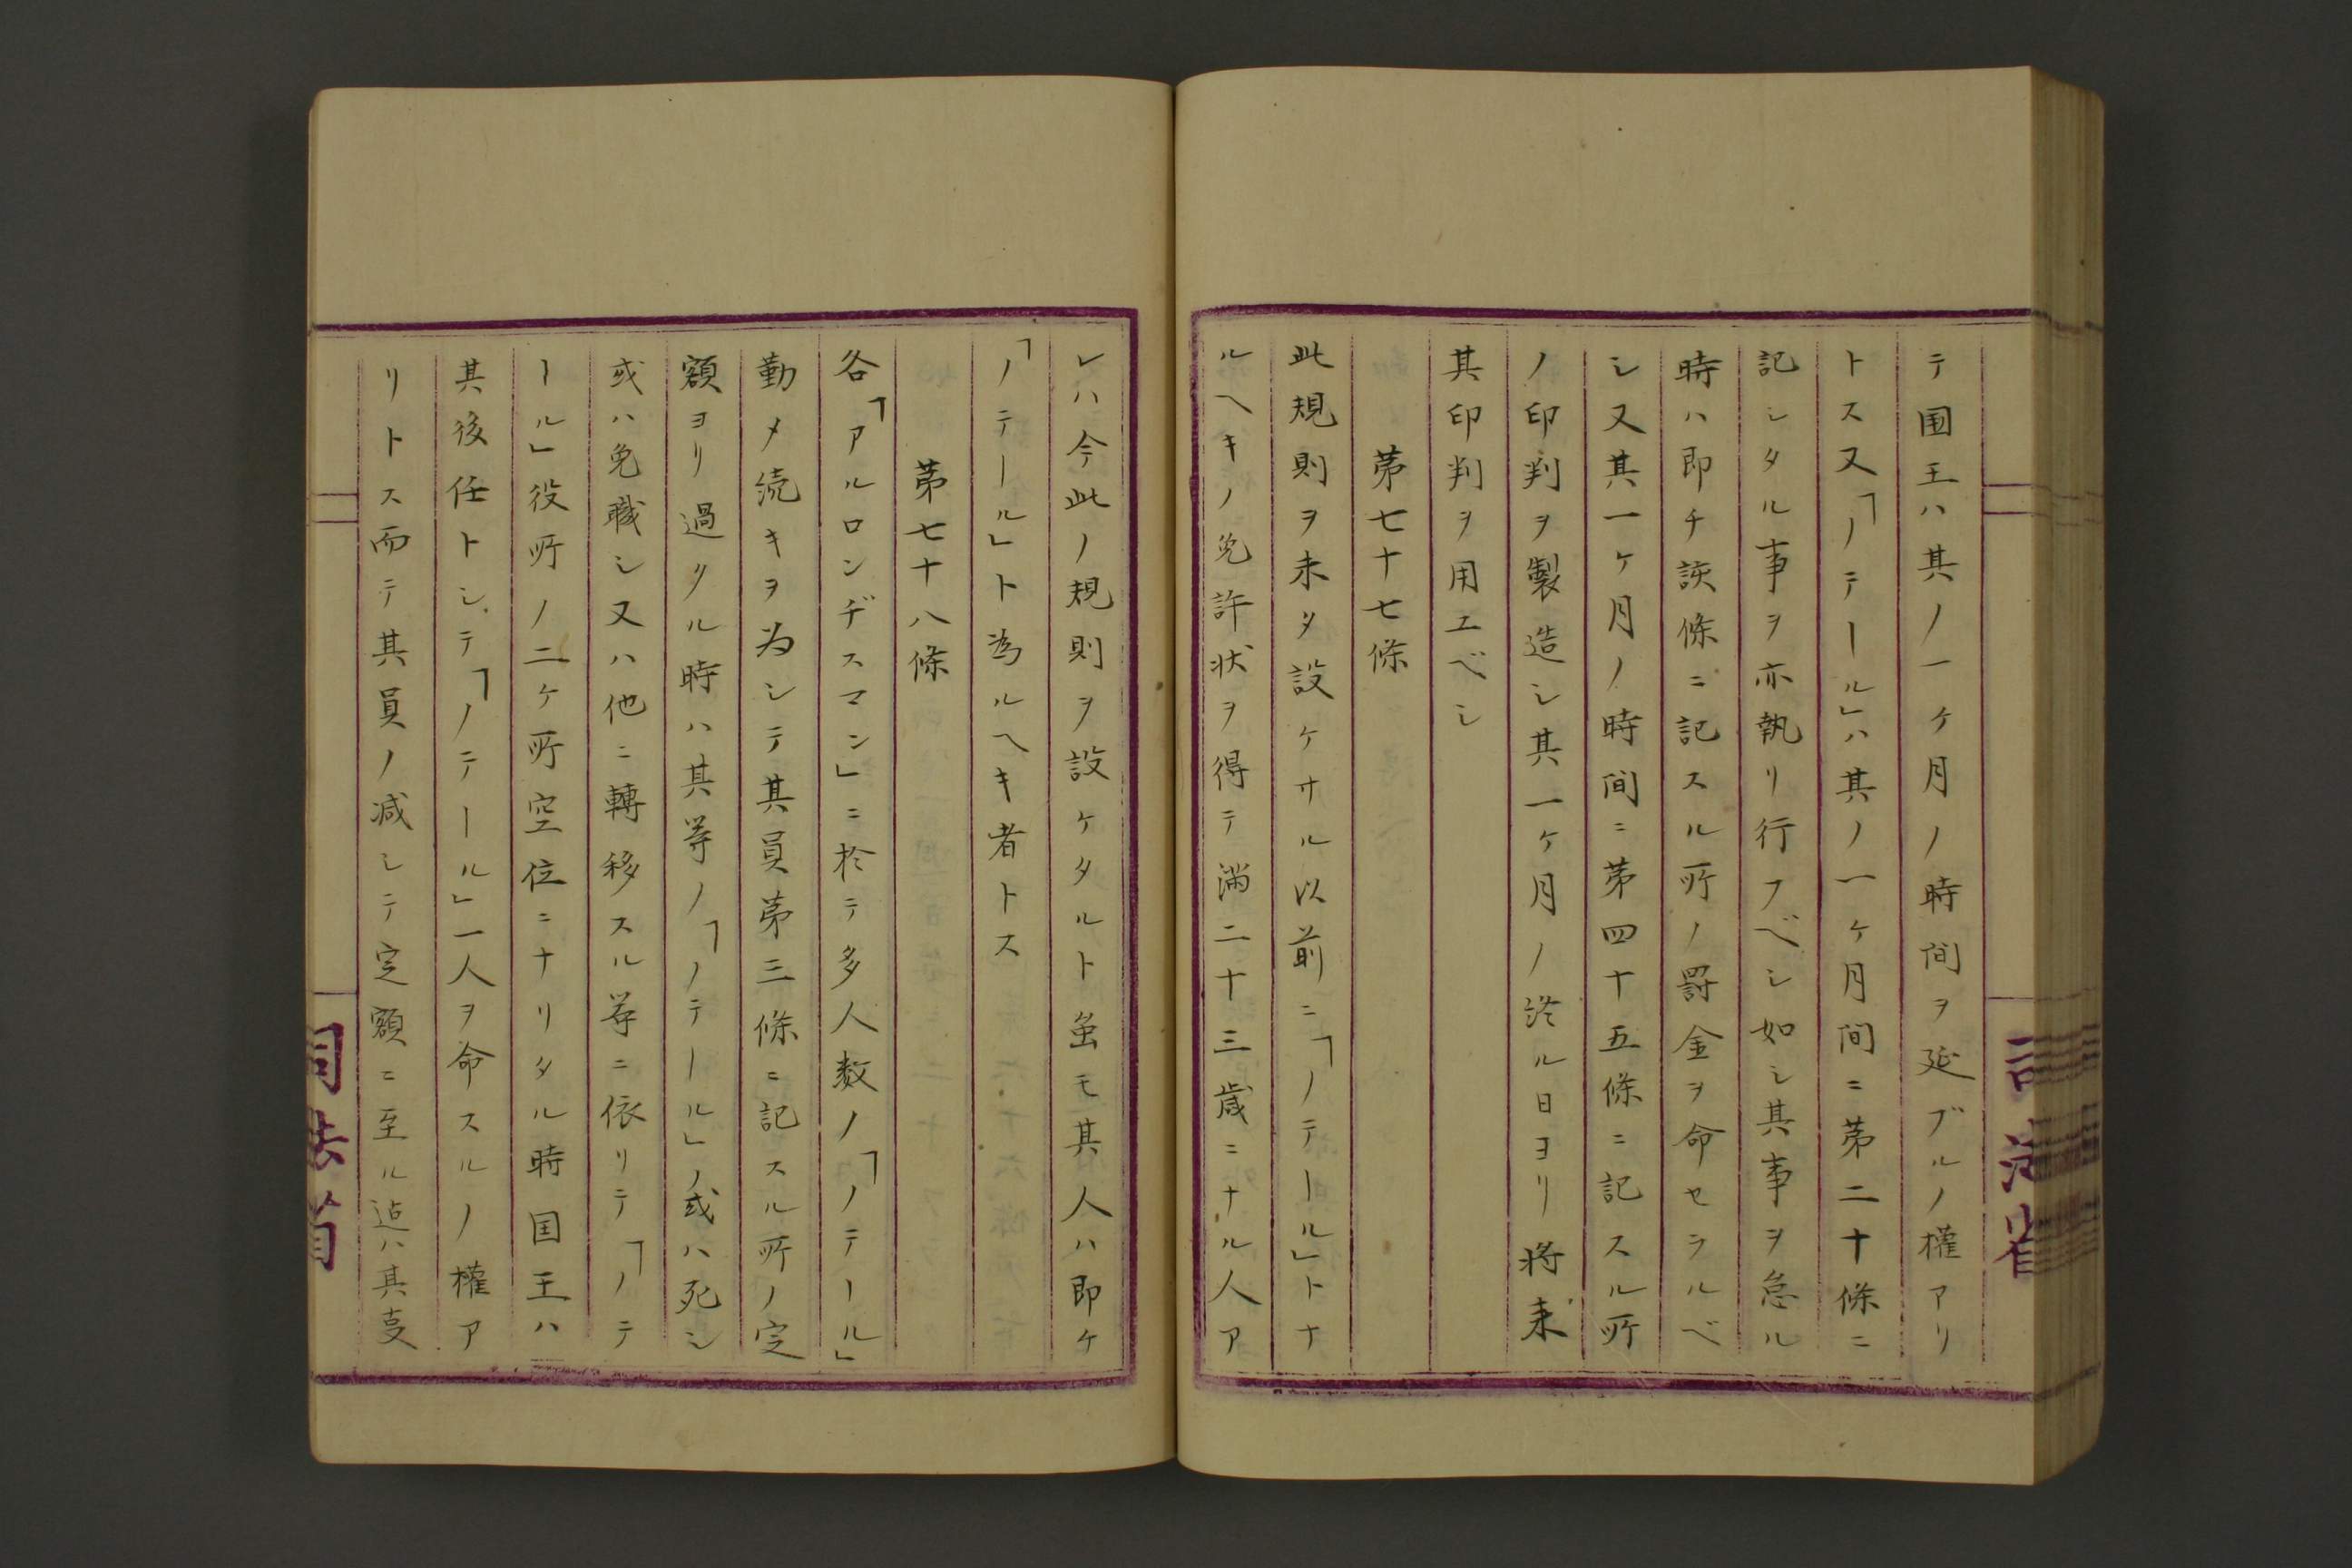 テ国王ハ其ノ一ケ月ノ時间ヲ延ブルノ權アリ
トス又「ノテール」ハ其ノ一ケ月间ニ第二十條ニ
記シタル事ヲ亦執リ行フベシ如シ其事ヲ怠ル
時ハ即チ該條ニ記スル所ノ罸金ヲ命セラルベ
シ又其一ケ月ノ時间ニ第四十五條ニ記スル所
ノ印判ヲ製造シ其一ケ月ノ終ル日ヨリ将来
其印判ヲ用エベシ
第七十七條
此規則ヲ未タ設ケサル以前ニ「ノテール」トナ
ルヘキノ免許状ヲ得テ満二十三歳ニナル人ア
レハ今此ノ規則ヲ設ケタルト虽モ其人ハ即ケ
「ノテール」ト為ルヘキ者トス
第七十八條
各「アルロンヂスマン」ニ於テ多人数ノ「ノテール」
勤メ続キヲ為シテ其員第三條ニ記スル所ノ定
額ヨリ過タル時ハ其等ノ「ノテール」ノ或ハ死シ
或ハ免職シ又ハ他ニ轉移スル等ニ依リテ「ノテ
ール」役所ノ二ケ所空位ニナリタル時国王ハ
其後任トシテ「ノテール」一人ヲ命スルノ權ア
リトス而テ其員ノ减シテ定額ニ至ル迠ハ其
司法省